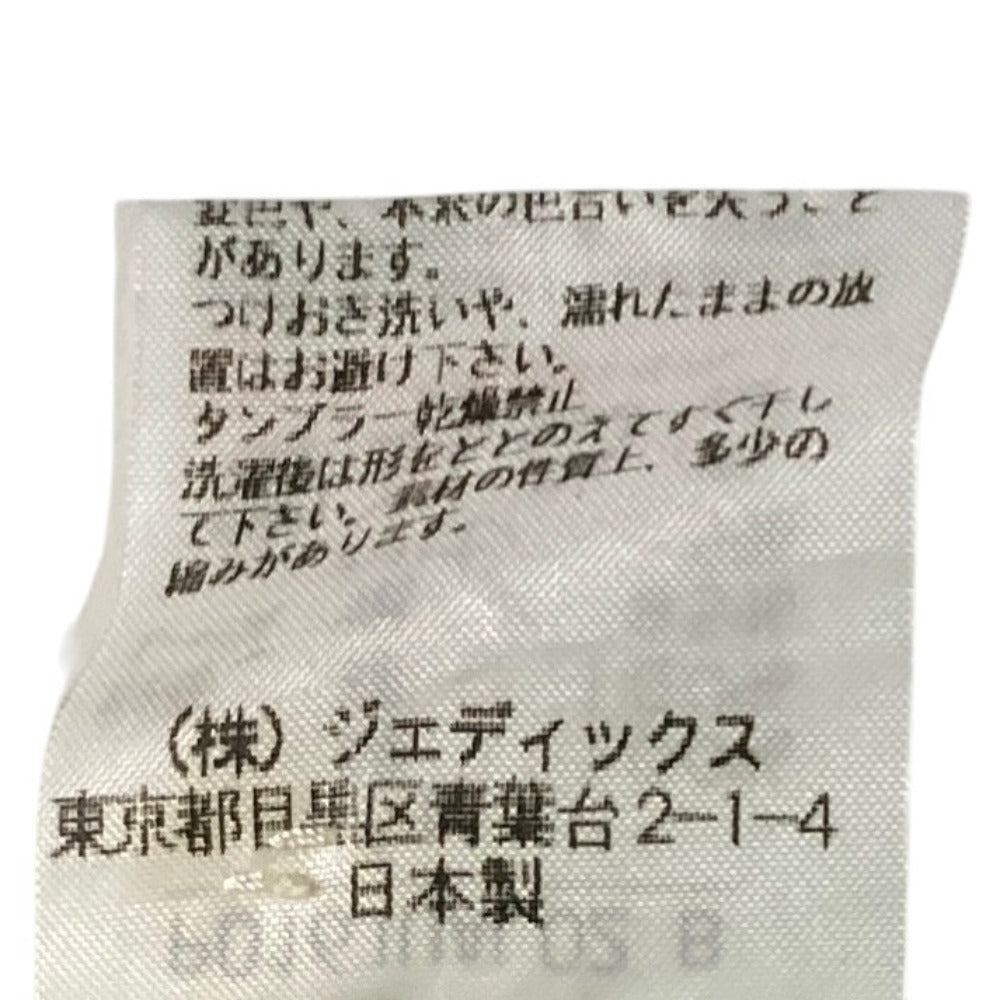 変色や、本来の色合いを失うこと
があります。
つけおき洗いや、濡れたままの放
置はお避け下さい。
タンブラー乾燥禁止
洗濯後は形をととのえてすぐ干し
て下さい。素材の性質上、多少の
縮みがあります。
(株) ジェディックス
東京都目黒区青葉台2-1-4
日本製